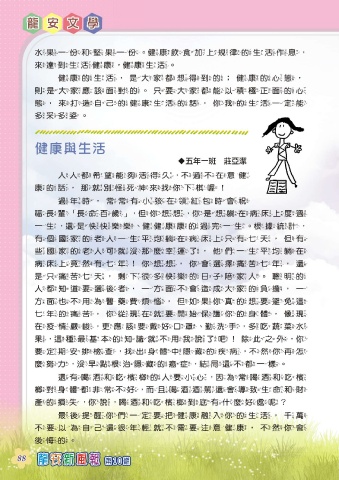 龍安文學
水果一份和堅果一份。健康飲食加上規律的生活作息，
來達到生活健康，健康生活。
健康的生活，是大家都想得到的；健康的心態，
則是大家應該面對的。只要大家都能以積極正面的心
態，來打造自己的健康生活的話，你我的生活一定能
多采多姿。
健康與生活
◆五年一班 莊亞潔
人人都希望能夠活得久，不過不在意健
康的話，那就別怪死神來找你下棋嘍！
過年時，常常有小孩在領紅包時會祝
福長輩「長命百歲」，但你想想，你是想躺在病床上度過
一生，還是快快樂樂、健健康康的過完一生。根據統計，
有個國家的老人一生平均躺在病床上只有七天，但有
些國家的老人可就沒那麼幸運了，他們一生平均躺在
病床上竟然有七年！你想想，你會選擇痛苦七年，還
是只痛苦七天，剩下很多快樂的日子陪家人。聰明的
人都知道要選後者，一方面不會造成大家的負擔，一
方面也不用為醫藥費煩惱，但如果你真的想要避免這
七年的痛苦，你從現在就要開始保護你的身體，像現
在疫情嚴峻，更應該要戴好口罩、勤洗手、多吃蔬菜水
果，這種最基本的知識就不用我說了吧！除此之外，你
要定期安排檢查，找出身體中隱藏的疾病，不然你再怎
麼努力，沒早點根治隱藏的癌症，結局還不都一樣。
還有喝酒和吃檳榔的人要小心，因為常喝酒和吃檳
榔對身體都非常不好，而且喝酒酒駕還會導致生命和財
產的損失，你說，喝酒和吃檳榔到底有什麼好處呢？
最後提醒你們一定要把健康融入你的生活，千萬
不要以為自己還很年輕就不需要注意健康，不然你會
後悔的。
88 龍安新風貌 第30期